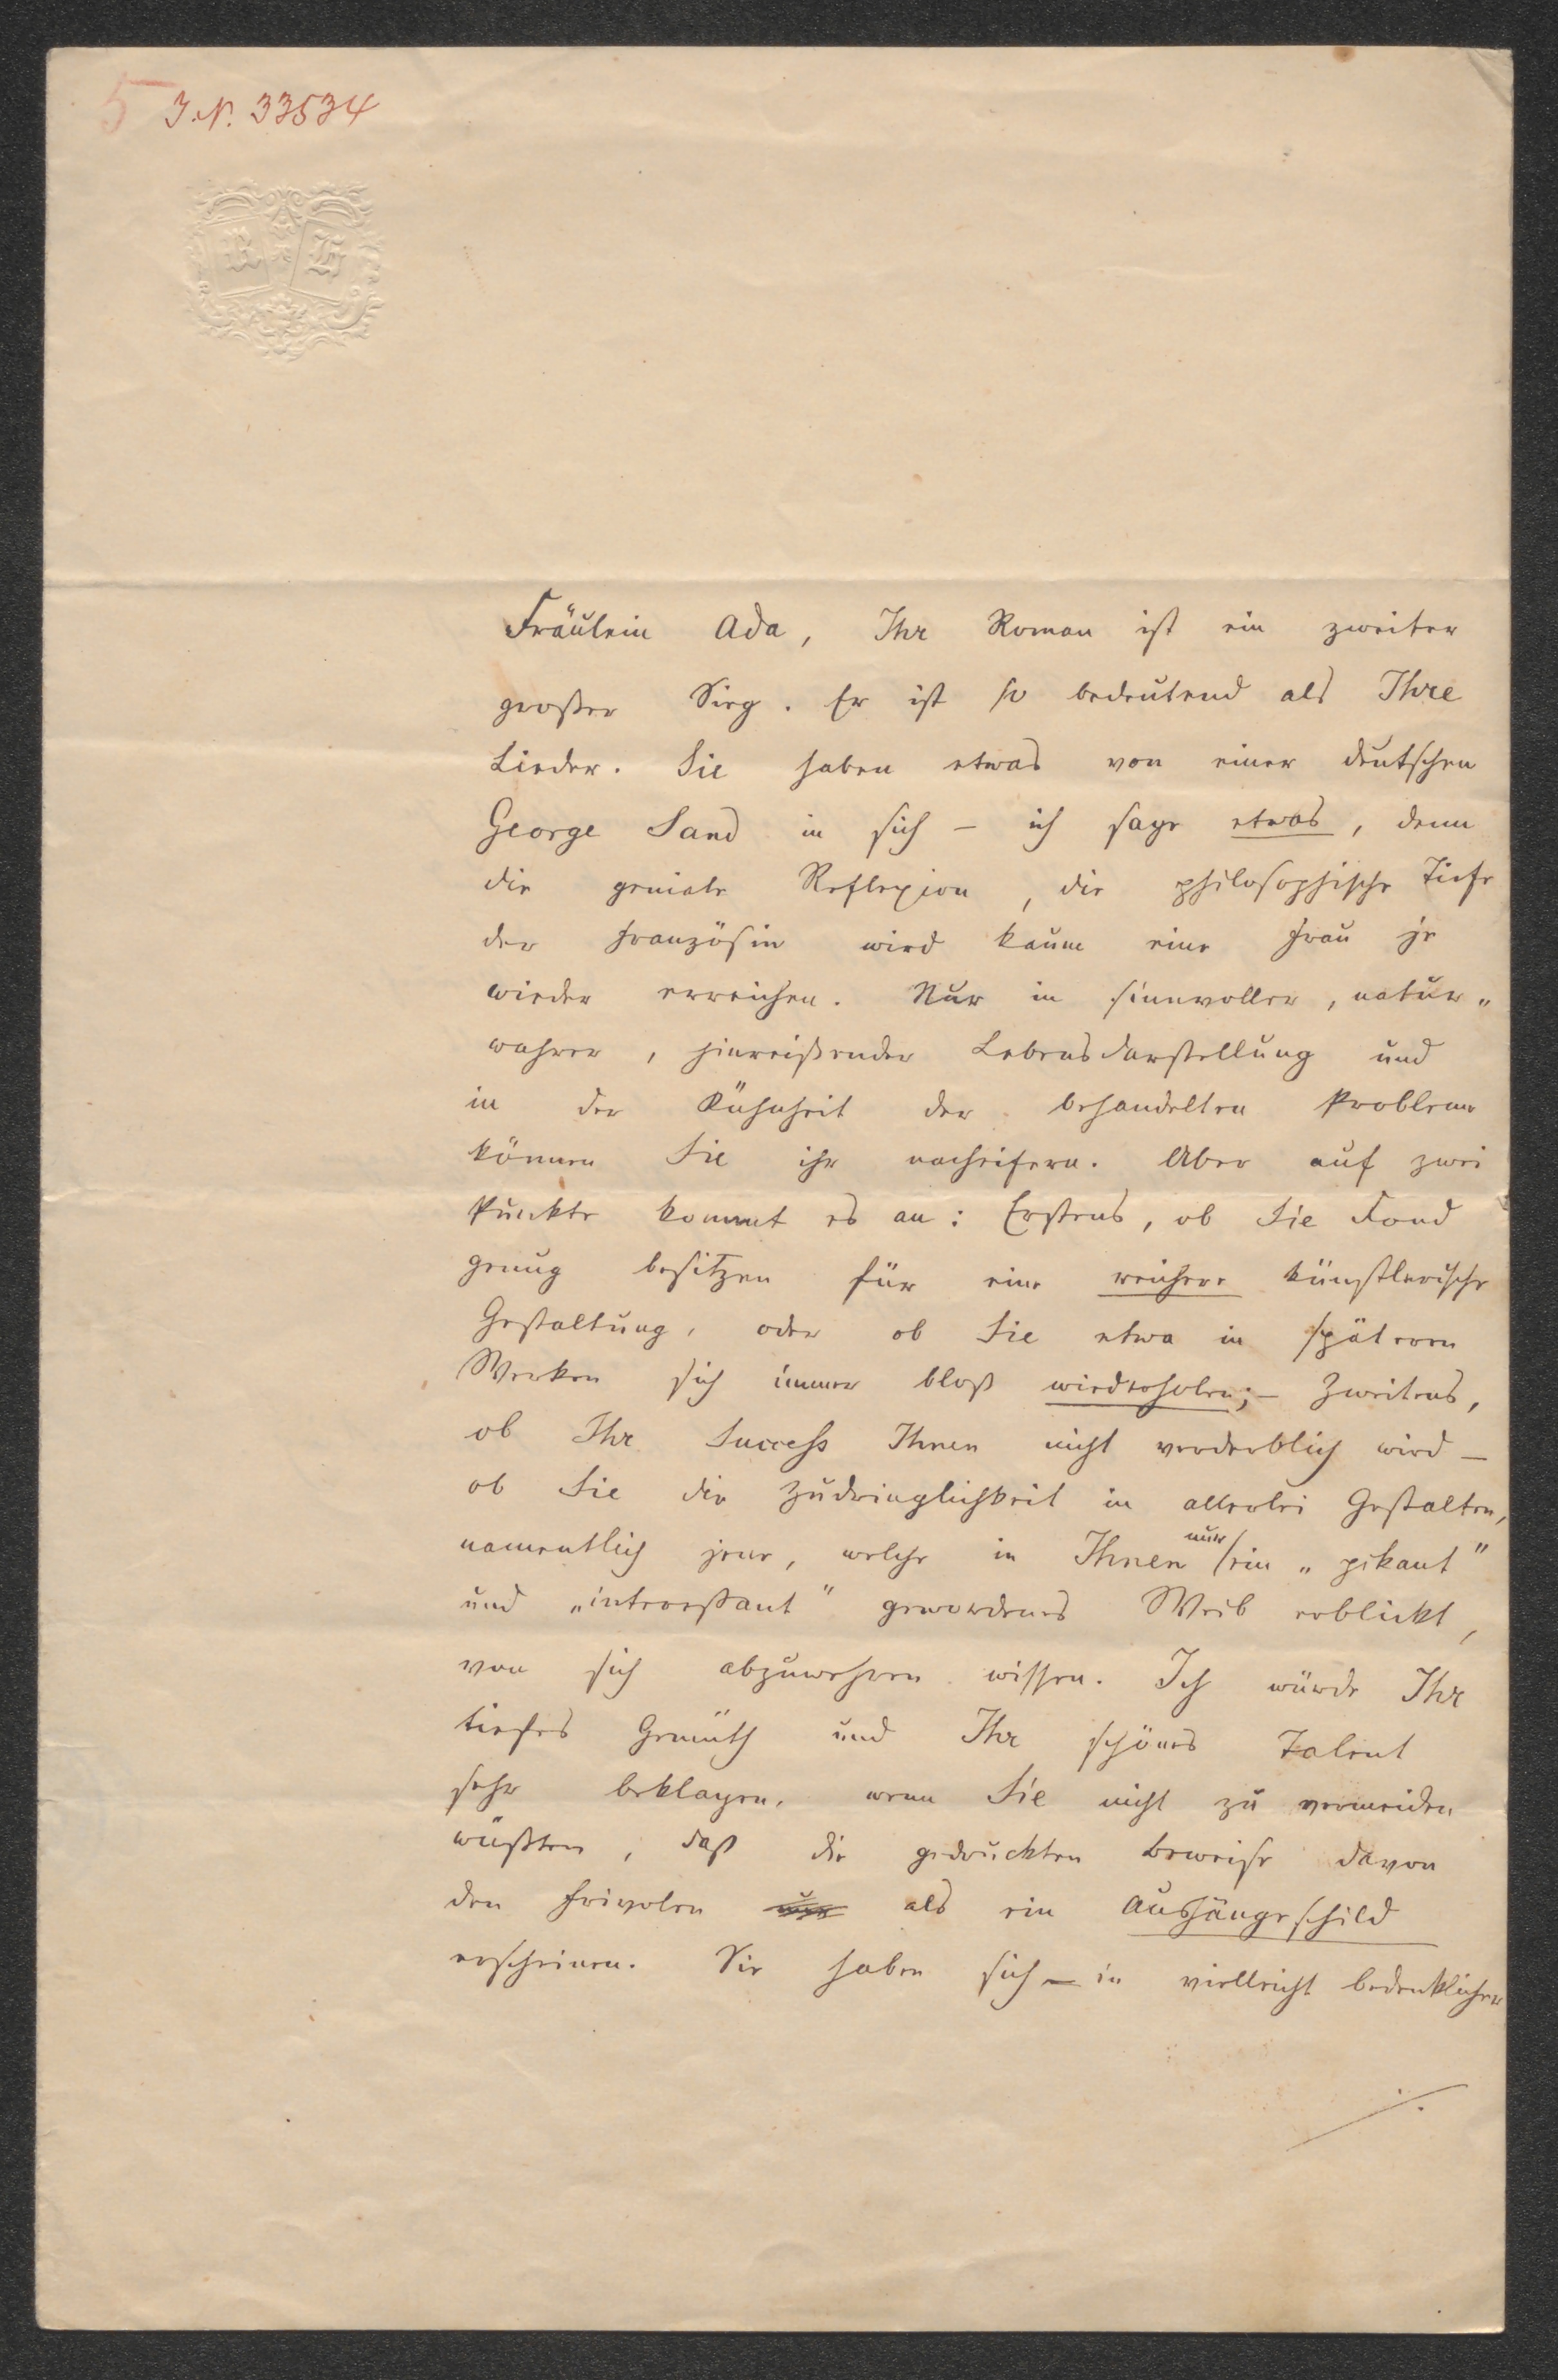 5 J.N. 33534
R H
Fräulein Ada, Ihr Roman ist ein zweiter
großer Sieg. Er ist so bedeutend als Ihre
Lieder. Sie haben etwas von einer deutschen
George Sand in sich – ich sage etwas, denn
die geniale Reflexion, die philosophische Tiefe
der Französin wird kaum eine Frau je
wieder erreichen. Nur in sinnvoller, natur„
wahrer, hinreißender Lebensdarstellung und
in der Kühnheit der behandelten Probleme
können Sie ihr nacheifern. Aber auf zwei
Punkte kommt es an: Erstens, ob Sie Fond
genug besitzen für eine reichere künstlerische
Gestaltung, oder ob Sie etwa in späteren
Werken sich immer bloß wiederholen; – Zweitens,
ob Ihr Success Ihnen nicht verderblich wird –
ob Sie die Zudringlichkeit in allerlei Gestalten,
namentlich jene, welche in Ihnen nur ein „pikant"
und „interessant" gewordenes Weib erblickt,
von sich abzuwehren wissen. Ich würde Ihr
tiefes Gemüth und Ihr schönes Talent
sehr beklagen, wenn Sie nicht zu vermeiden
wüßten, daß die gedruckten Beweise davon
den Frivolen als ein Aushängeschild
erscheinen. Sie haben sich – in vielleicht bedenklicher
./.